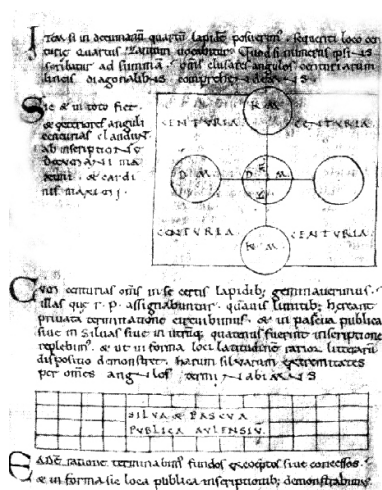 Item si in decumanum quartum lapidem posuerimus sequenti loco cen
turie quartus
scribatur ad summam omnis clusares angulos centuriarum
lineis diagonalibus comprehendemus
Sic & in toto fiet
& ceteros anguli
centurias claudunt
ab inscriptione
decumani ma
ximi & cardi
nis maximi
CENTVRIA CENTVRIA
K M
D M
D M
K
CENTVRIA CENTVRIA
K M
Cum centurias omnis in se certis lapidib; geminaverimus
illas que r. p. assignabuntur quamvis limitib; hereant
privata terminatione circuibimus & in pascua publica
sive in silvas sive in utrumq; quatenus fuerint inscriptione
replebimus & ut in forma loci latitudinem rarior litterarum
dispositio demonstret harum silvarum extremitates
per omnes angulos terminabimus
SILVA & PASCVA
PVBLICA AVLENSIV
Eadem ratione terminabimus fundos exceptos sive concessos
& in forma sic loca publica inscriptionib; demonstrabimus